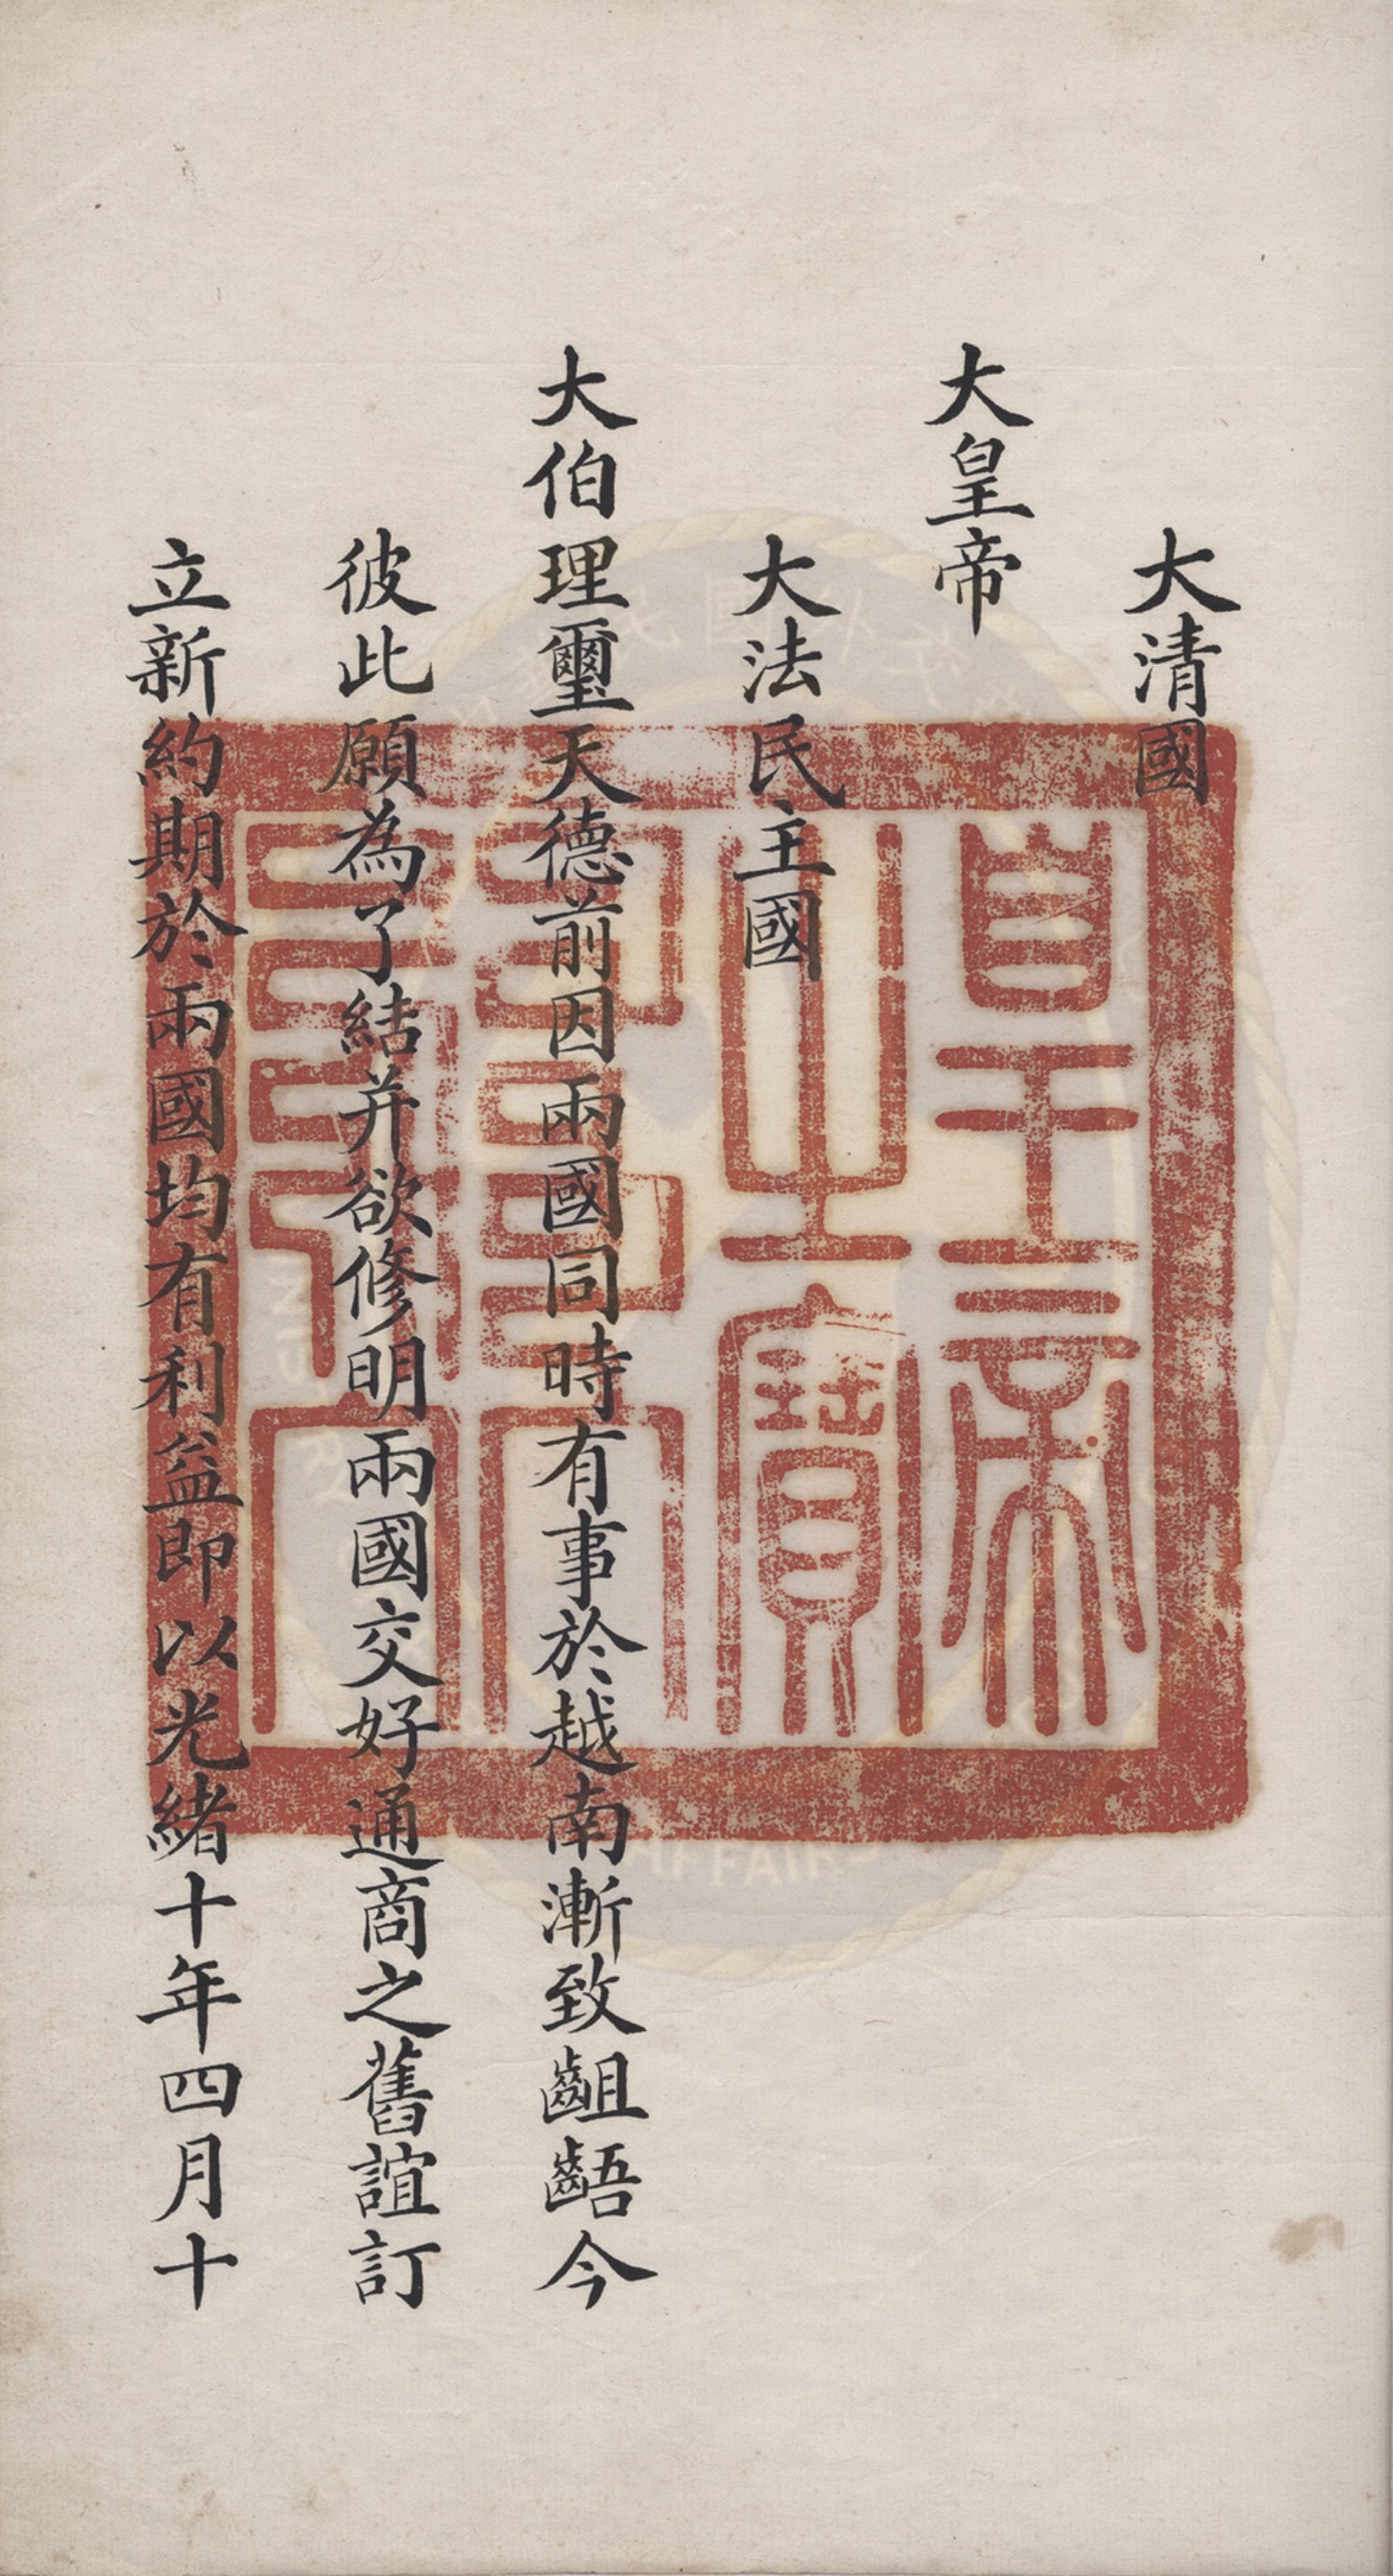 大清國
大皇帝
大法民主國
大伯理璽天德前因兩國同時有事於越南漸致齟齬今
彼此願為了結并欲修明兩國交好通商之舊誼訂
立新約期於兩國均有利益即以光緒十年四月十
皇帝之寶
AFFAIRS